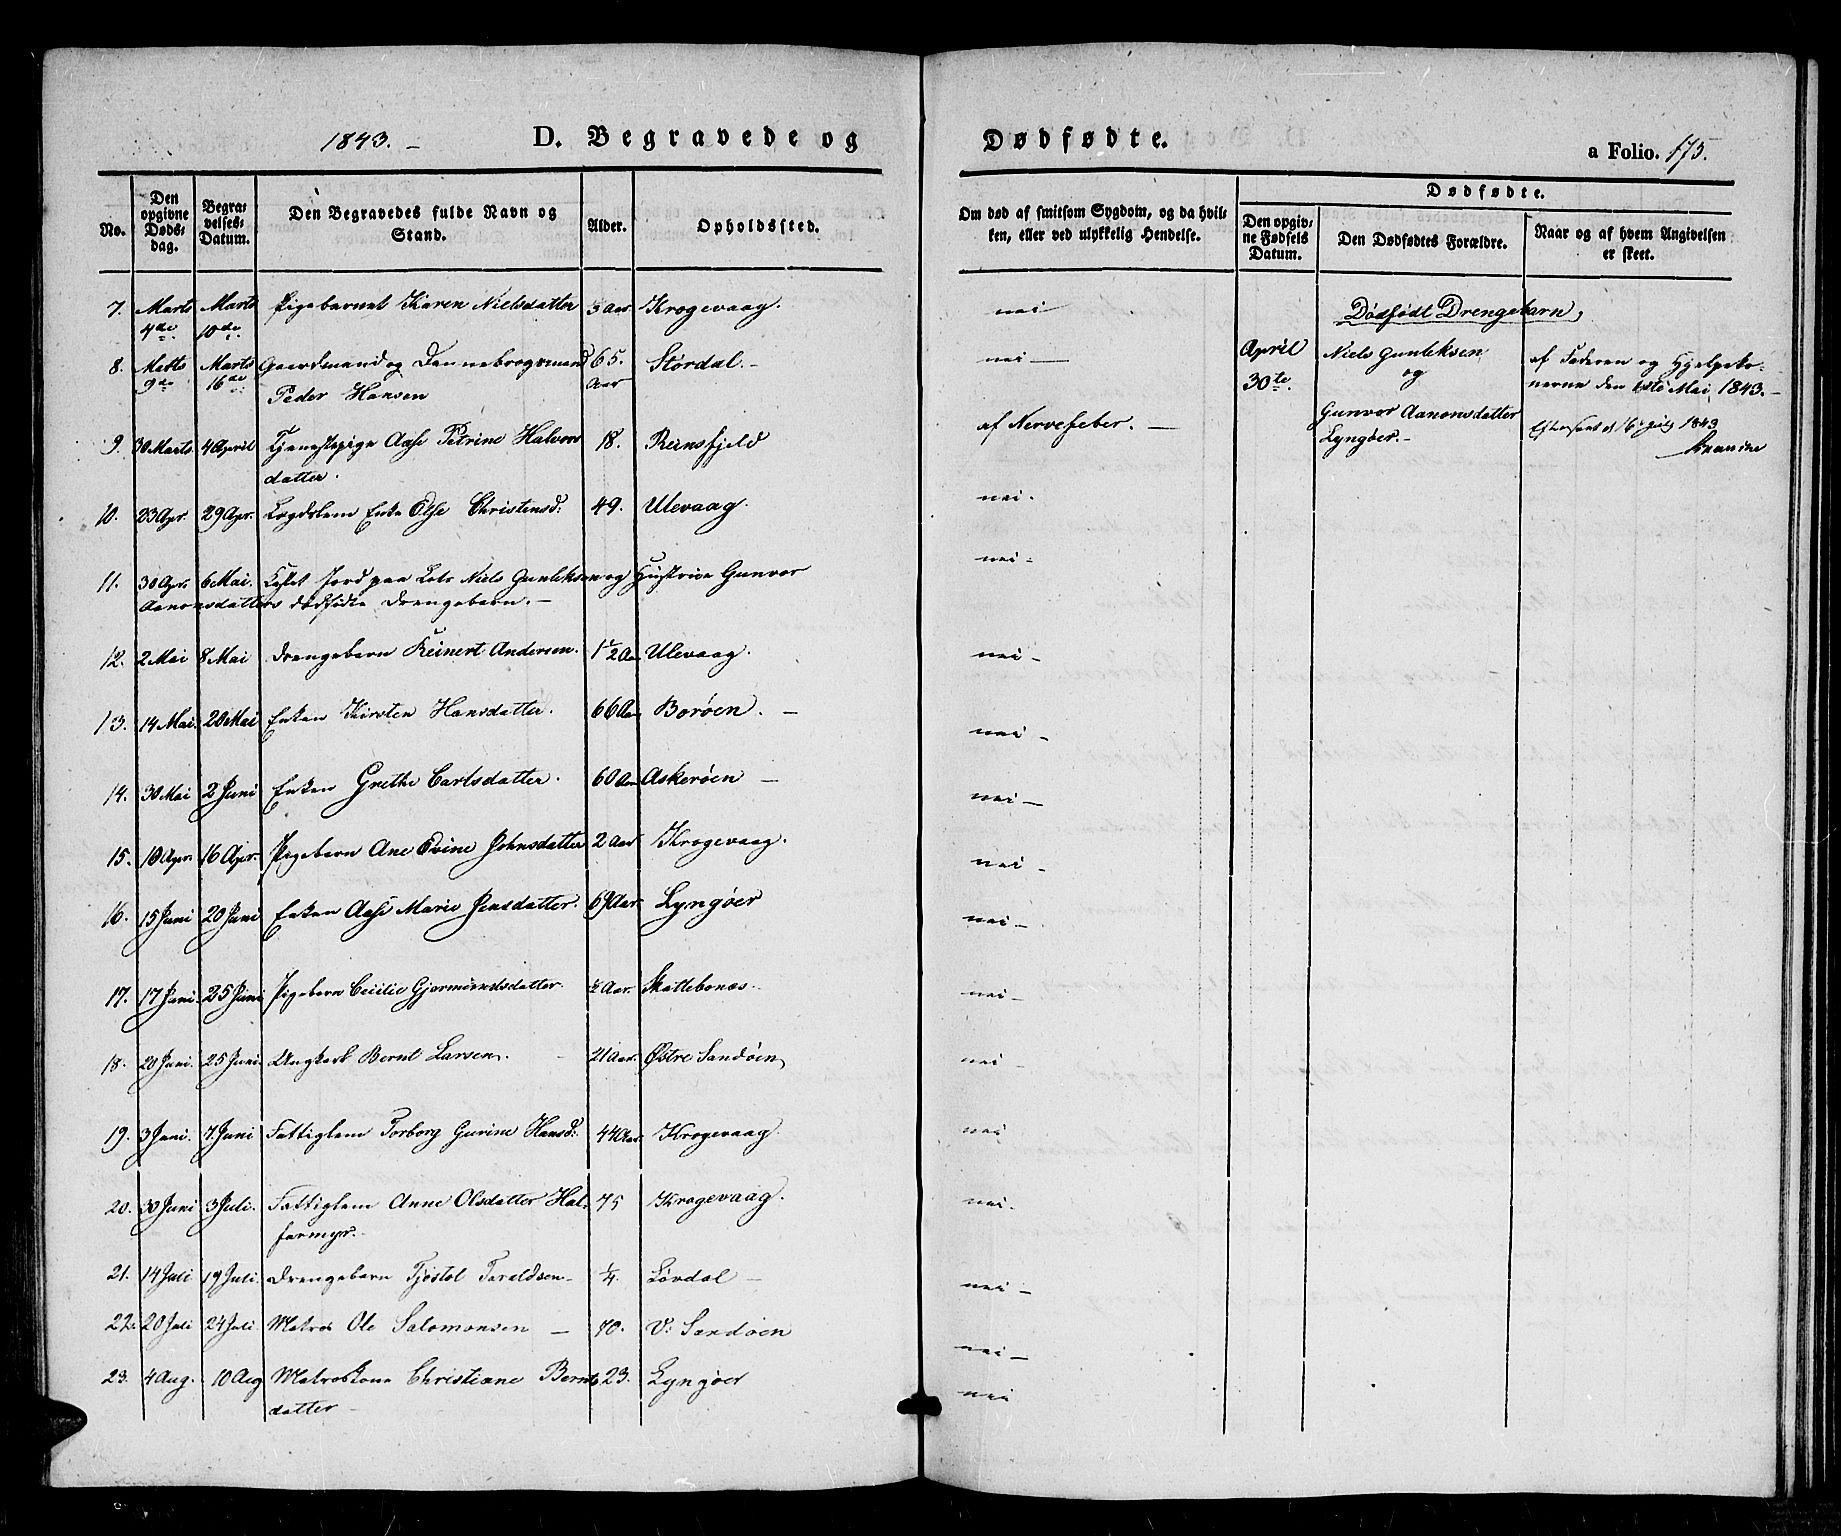 1843. – D. Begravede og Dødfødte. a Folio. 175.
No. Den opgivne Døds-dag. Begravelses-Datum. Den Begravedes fulde Navn og Stand. Alder. Opholdssted. Om død af smitsom Sygdom, og da hvilken, eller ved ulykkelig Hendelse. Dødfødte. Den opgivne Fødsels Datum. Den Dødfødtes Forældre. Naar og af hvem Angivelsen er skeet.
7. Marts 4de Marts 10de Pigebarnet Karen Nielsdatter 3 Aar. Krogevaag. nei
8. Marts 9de Marts 16de Gaardmand og Dannebrogsmand 65. Aar Stordal. – nei –
Peder Hansen
9. 30 Marts 4 April Tjenestepige Aase Petrine Halvors 18. Reinsfjeld af Nervefeber. –
datter.
10. 23 Apr. 29 Apr. Lægdslem Enke Else Christensd: 49. Ulevaag. nei.
11. 30 Apr. 6 Mai. Kastet Jord paa Lods Niels Gunleksen og Hustrue Gunvor nei –
Aanonsdatters dødfødte Drengebarn. –
12. 2 Mai 8 Mai Drengebarn Reinert Andersen. 1 1/2 Aar Ulevaag. nei –
13. 14 Mai. 20 Mai Enken Kirsten Hansdatter. 66 Aar Borøen. – nei –
14. 30 Mai 2 Juni Enken Grethe Carlsdatter. 60 Aar Askerøen – nei –
15. 10 Apr. 16 Apr. Pigebarn Ane Evine Johnsdatter 2 Aar Krogevaag. nei –
16. 15 Juni 20 Juni Enken Aase Marie Jensdatter. 69 Aar. Lyngøer nei –
17. 17 Juni. 25 Juni Pigebarn Cecilie Gjermundsdatter. 1/2 Aar. Skattebonæs. nei –
18. 20 Juni. 25 Juni. Ungkarl Bernt Larsen. 21 Aar. Østre Sandøen nei –
19. 3 Juni. 7 Juni Fattiglem Torborg Gurine Hansd: 44 Aar. Krogevaag. nei
20. 30 Juni 3 Juli. Fattiglem Anne Olsdatter Hal- 75 Krogevaag. nei.
formyr.
21. 14 Juli 19 Juli. Drengebarn Tjøstol Taraldsen – 1/4. Løvdal – nei –
22. 20 Juli 24 Juli Matros Ole Salomonsen – 40. V: Sandøen nei –
23. 4 Aug. 10 Aug Matroskone Christiane Bernts 23. Lyngøer nei
datter –
Dødfødt Drengebarn,
April 30te. Niels Gunleksen og Gunvor Aanonsdatter Lyngøer. –
af Faderen og Hjelpeko-
nerne den 1ste Mai 1843. –
Efterseet d 16 Juli 1843